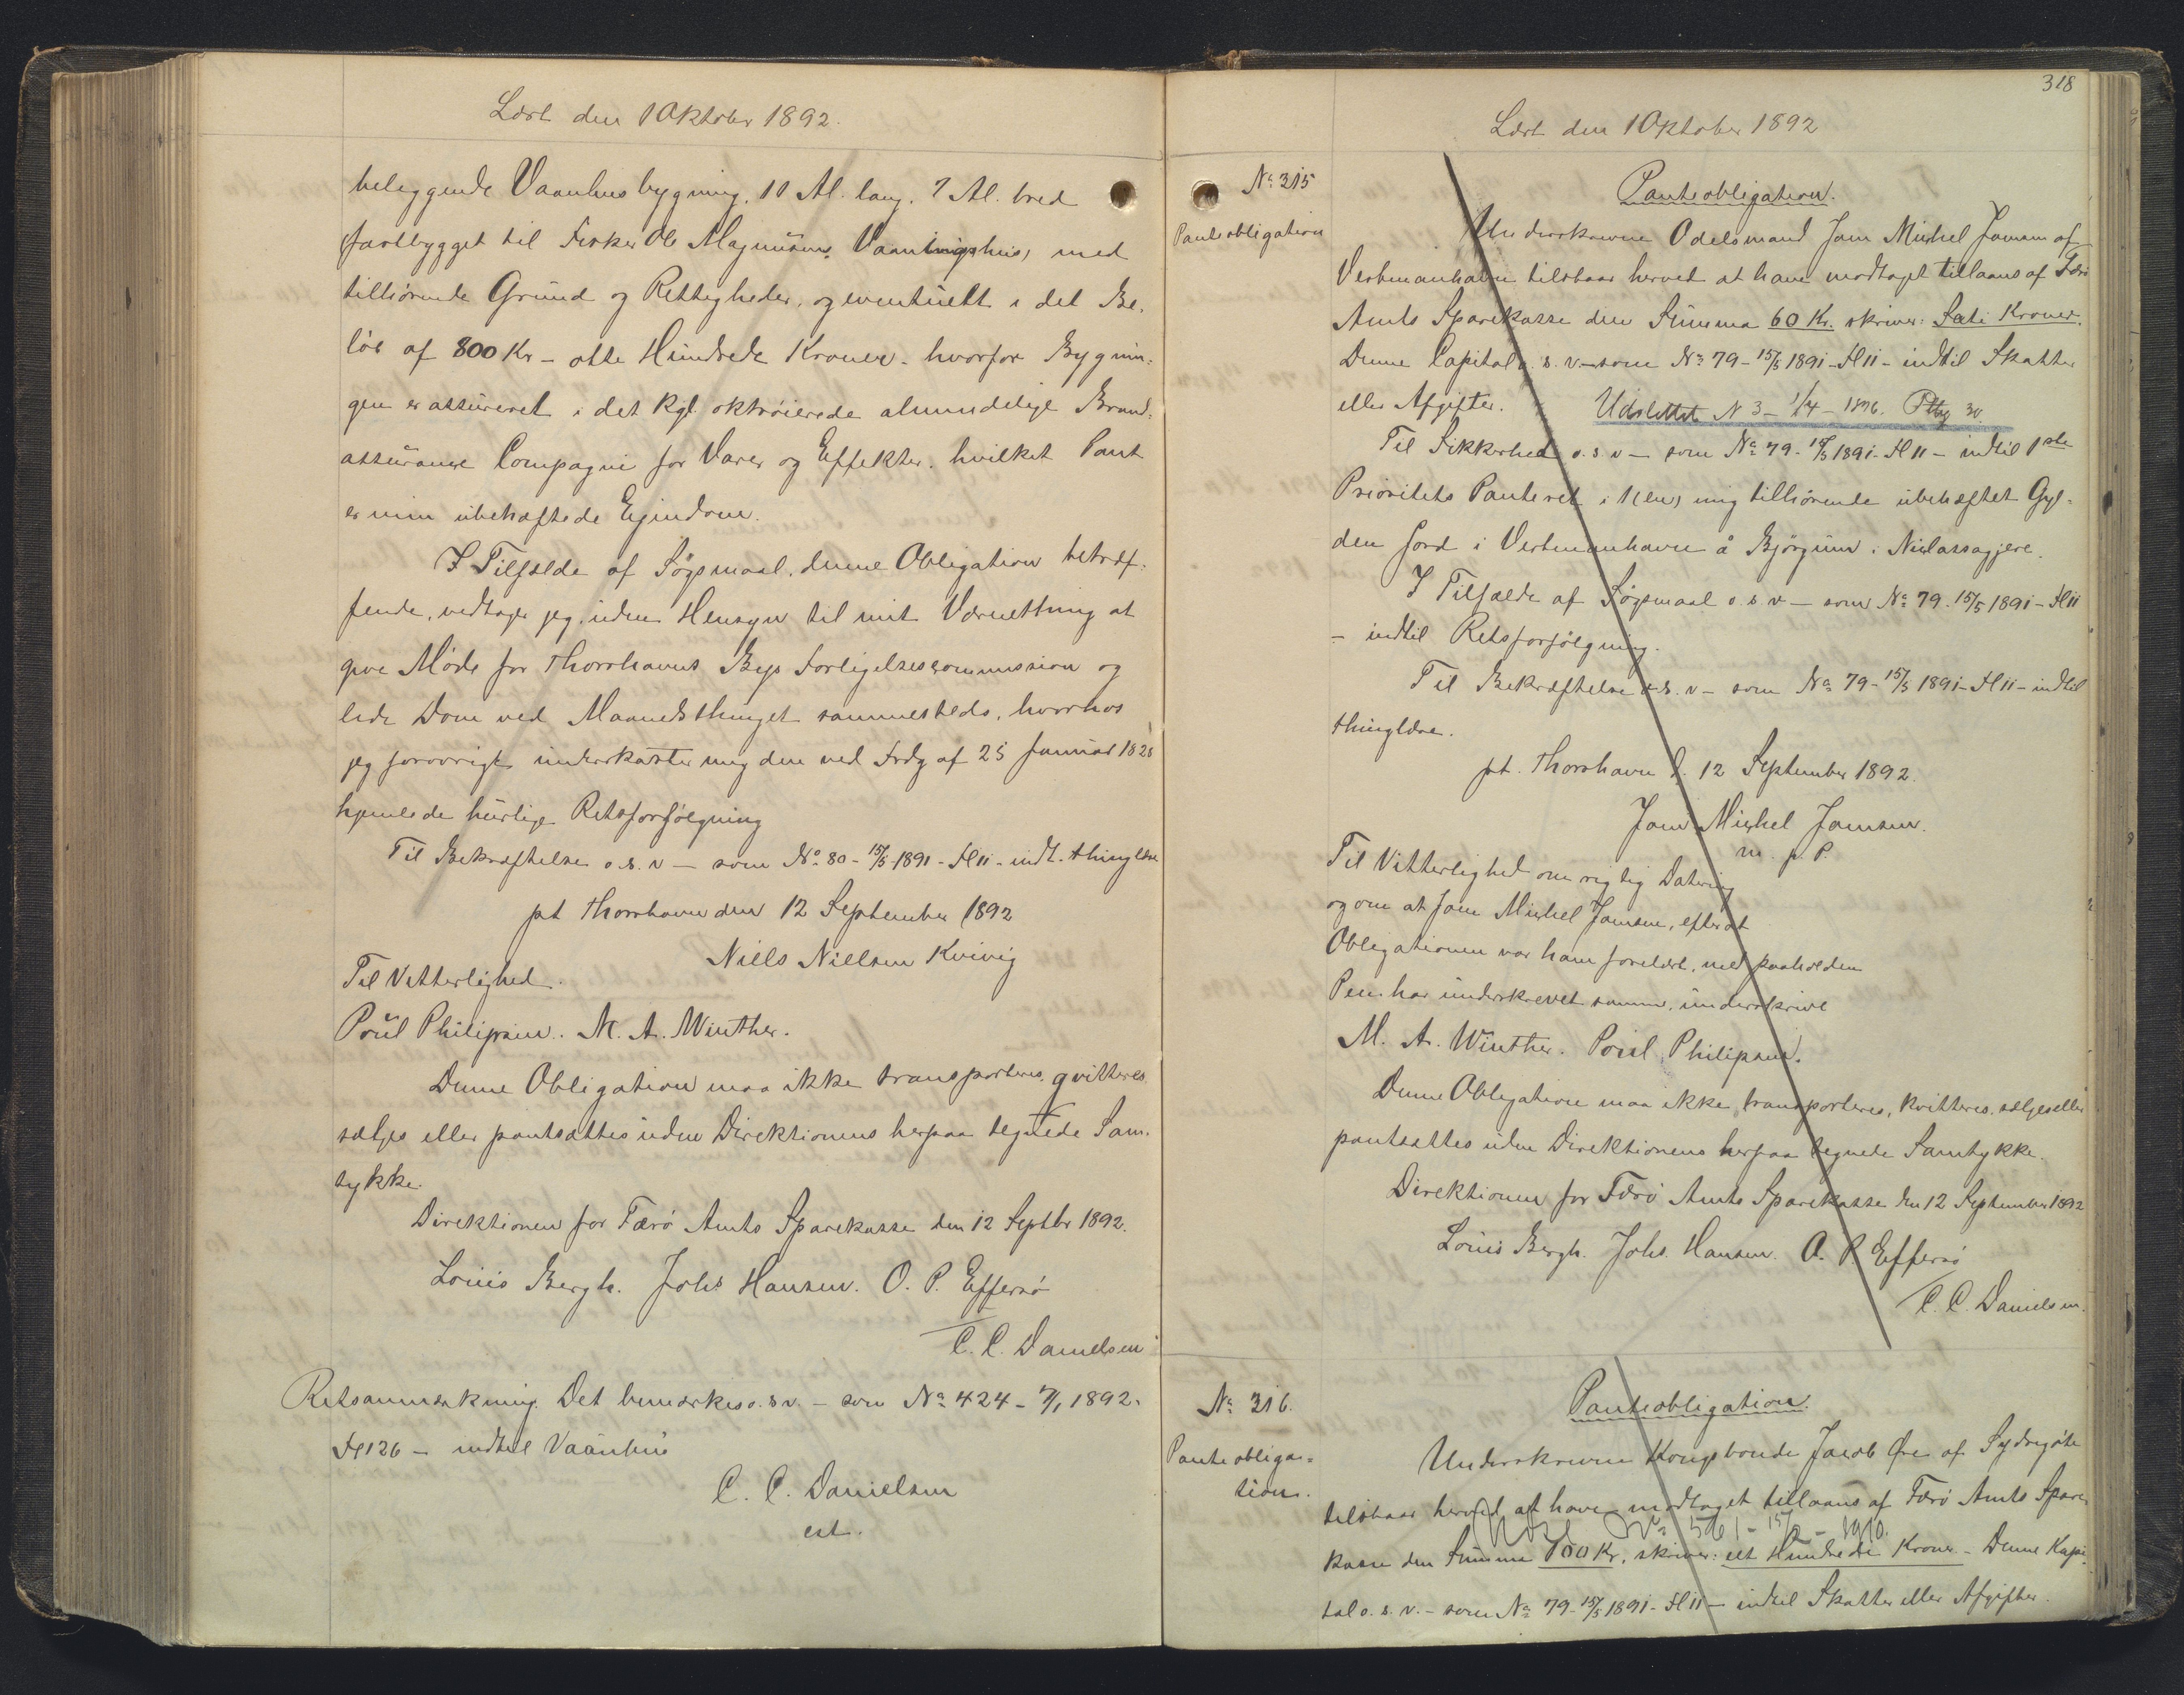 Læst den 1 Oktober 1892.
beliggende Vaanhusbygning, 10 Al. lang, 7 Al. bred
fastbygget til Fisker Ole Magnusens Vaaningshus, med
tilhørende Grund og Rettigheder, og eventuelt i det Be-
løb af 800 Kr – otte Hundrede Kroner – hvorfor Bygnin-
gen er assureret i det kgl. oktroierede almindelige Brand-
assurance Compagni for Varer og Effekter, hvilket Pant
er min ubehæftede Ejendom.
I Tilfælde af Søgsmaal, denne Obligation betræf-
fende, vedtager jeg, uden Hensyn til mit Værnething at
give Møde for Thorshavns Byes Forligelsescommission og
lide Dom ved Maanedsthinget sammesteds, hvorhos
jeg forøvrigt underkaster mig den ved Frdg af 25 Januar 1828
hjemlede hurtige Retsforfølgning
Til Bekræftelse o.s.v – som No 80 – 15/5 1891 – H 11 – indt. thinglæse
pt Thorshavn den 12 September 1892
Niels Nielsen Kvivig
Til Vitterlighed.
Poul Philipsen. M. A. Winther.
Denne Obligation maa ikke transporteres, qvitteres
sælges eller pantsættes uden Direktionens herpaa tegnede Sam-
tykke.
Direktionen for Færø Amts Sparekasse den 12 Septbr 1892.
Louis Bergh. Johs Hansen. O. P. Effersø
C. C. Danielsen
Retsanmærkning. Det bemærkes o.s.v. – som No 424 – 7/1 1892.
H 126 – indtil Vaanhus
C. C. Danielsen
cst.
318
Læst den 1 Oktober 1892
No 315
Panteobligation
Panteobligation.
Underskrevne Odelsmand Joen Michel Joensen af
Vestmanhavn tilstaar herved at have modtaget tillaans af Færø
Amts Sparekasse den Summa 60 Kr. skriver: Sæti Kroner.
Denne Capital o. s. v – som No 79 – 15/5 1891 – H 11 – indtil Skatter
eller Afgifter.
Udslettet N 3 – 1/4 – 1896.
Til Sikkerhed o. s v – som No 79 – 15/5 1891 – H 11 – indtil 1ste
Prioritets Panteret i 1 (en) mig tilhørende ubehæftet Gyl-
den Jord i Vestmanhavn å Bjørgum i Niclassagjere.
I Tilfælde af Søgsmaal o. s v – som No 79 – 15/5 1891 – H 11
– indtil Retsforfølgning.
Til Bekræftelse o. s. v – som No 79 – 15/5 1891 – H 11 – indtil
thinglæse.
pt. Thorshavn d. 12 September 1892.
Joen Michel Joensen.
m. p. P.
Til Vitterlighed om rigtig Datering
og om at Joen Michel Joensen, efter at
Obligationen var ham forelæst, med paaholden
Pen har underskrevet samme, underskrive
M. A. Winther. Poul Philipsen.
Denne Obligation maa ikke transporteres, kvitteres, sælges eller
pantsættes uden Direktionens herpaa tegnede Samtykke.
Direktionen for Færø Amts Sparekasse den 12 September 1892
Louis Bergh. Johs. Hansen. O. P. Effersø
C. C. Danielsen.
No 316.
Panteobliga-
tion.
Panteobligation.
Underskrevne Kongsbonde Jacob Øre af Sydregøte
tilstaar herved at have modtaget tillaans af Færø Amts Spare-
No 561 – 15/2 – 1910.
kasse den Summa 100 Kr, skriver: eet Hundrede Kroner – Denne Kapi-
tal o. s. v. – som No 79 – 15/5 1891 – H 11 – indtil Skatter eller Afgifter.